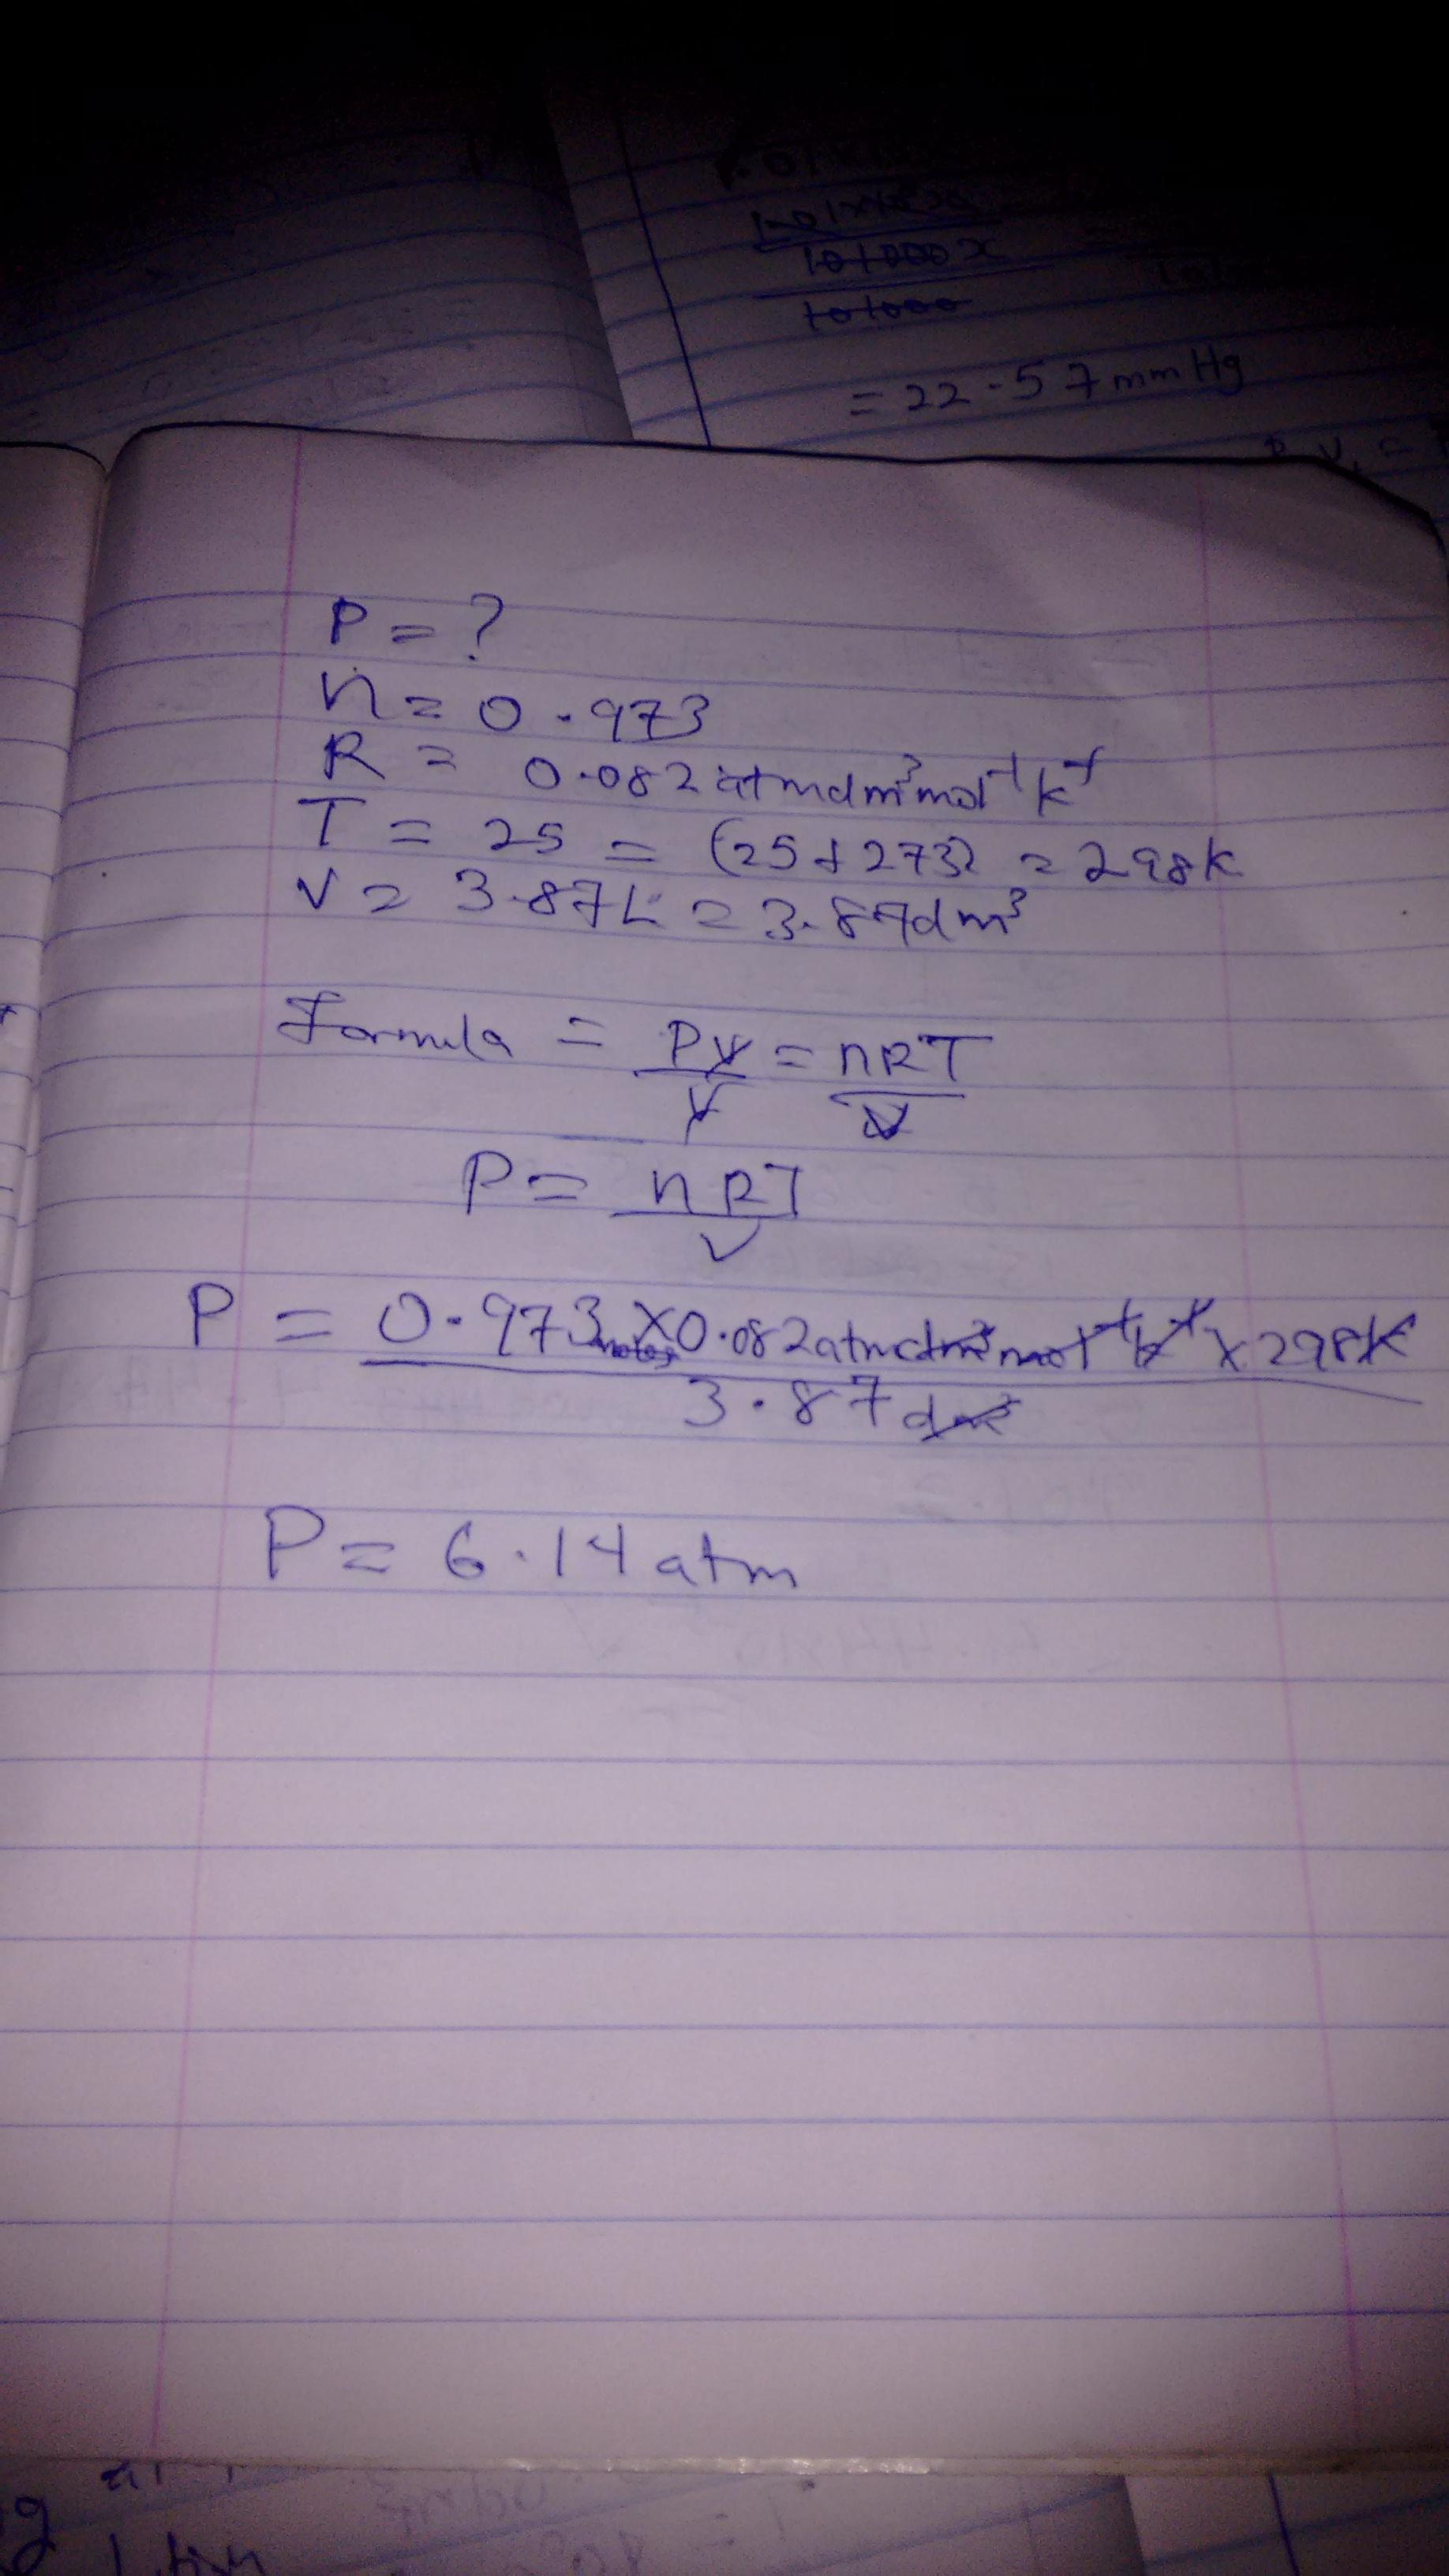 101000x
101000
= 22.57mmHg
P = ?
n = 0.973
R = 0.082 atmdm³mol⁻¹k⁻¹
T = 25 = (25+273) = 298k
V = 3.87L = 3.87dm³
Formula = PV = nRT
V V
P = nRT
V
P = 0.973moles × 0.082atmdm³mol⁻¹k⁻¹ × 298k
3.87dm³
P = 6.14atm